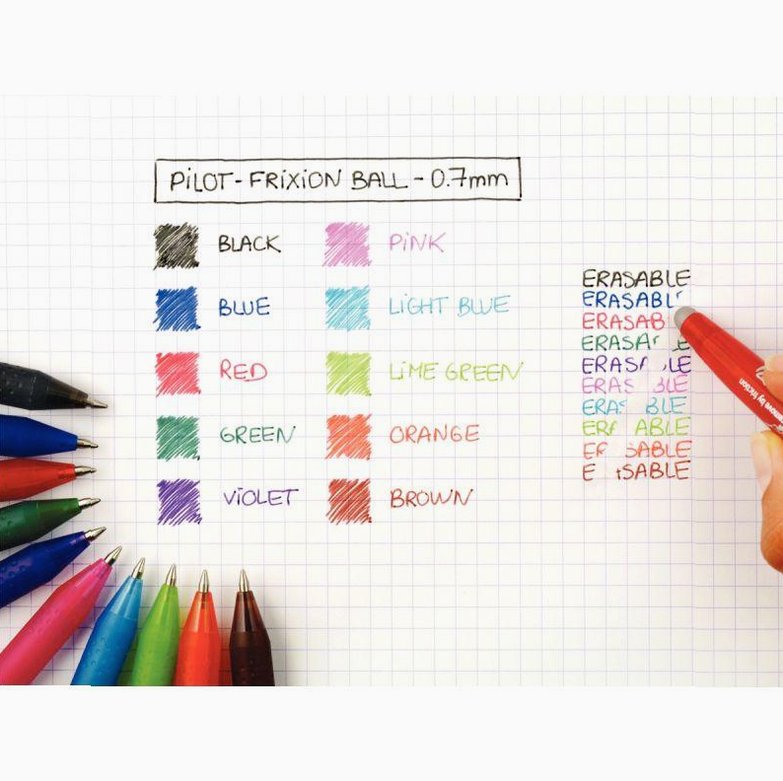 PiLOT-FRiXiON BALL-0.7mm
BLACK
BLUE
RED
GREEN
ViOLET
PiNK
LiGHT BLUE
LiME GREEN
ORANGE
BROWN
ERASABLE
ERASABL
ERASAB
ERASA LE
ERAS LE
ERAS BLE
ERA BLE
ER ABLE
ER SABLE
E SABLE
remove by friction